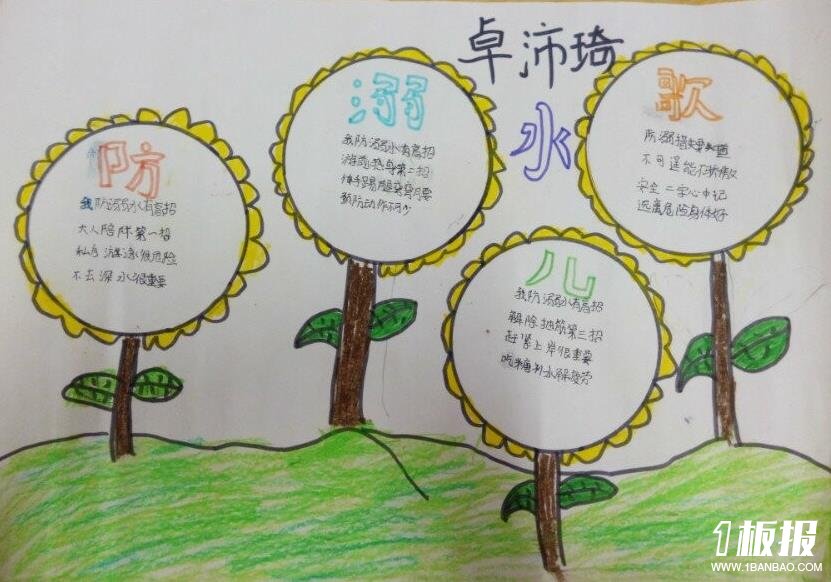 卓沛琦
防
溺
水
儿
歌
我防溺水有高招
大人陪伴第一招
私自游泳很危险
不去深水很重要
我防溺水有高招
游前热身第二招
伸手踢腿弯弯腰
预防动作不可少
我防溺水有高招
解除抽筋第三招
赶紧上岸很重要
喝糖补水解疲劳
防溺措施要知道
不可逞能不骄傲
安全二字心中记
远离危险身体好
1板报
WWW.1BANBAO.COM